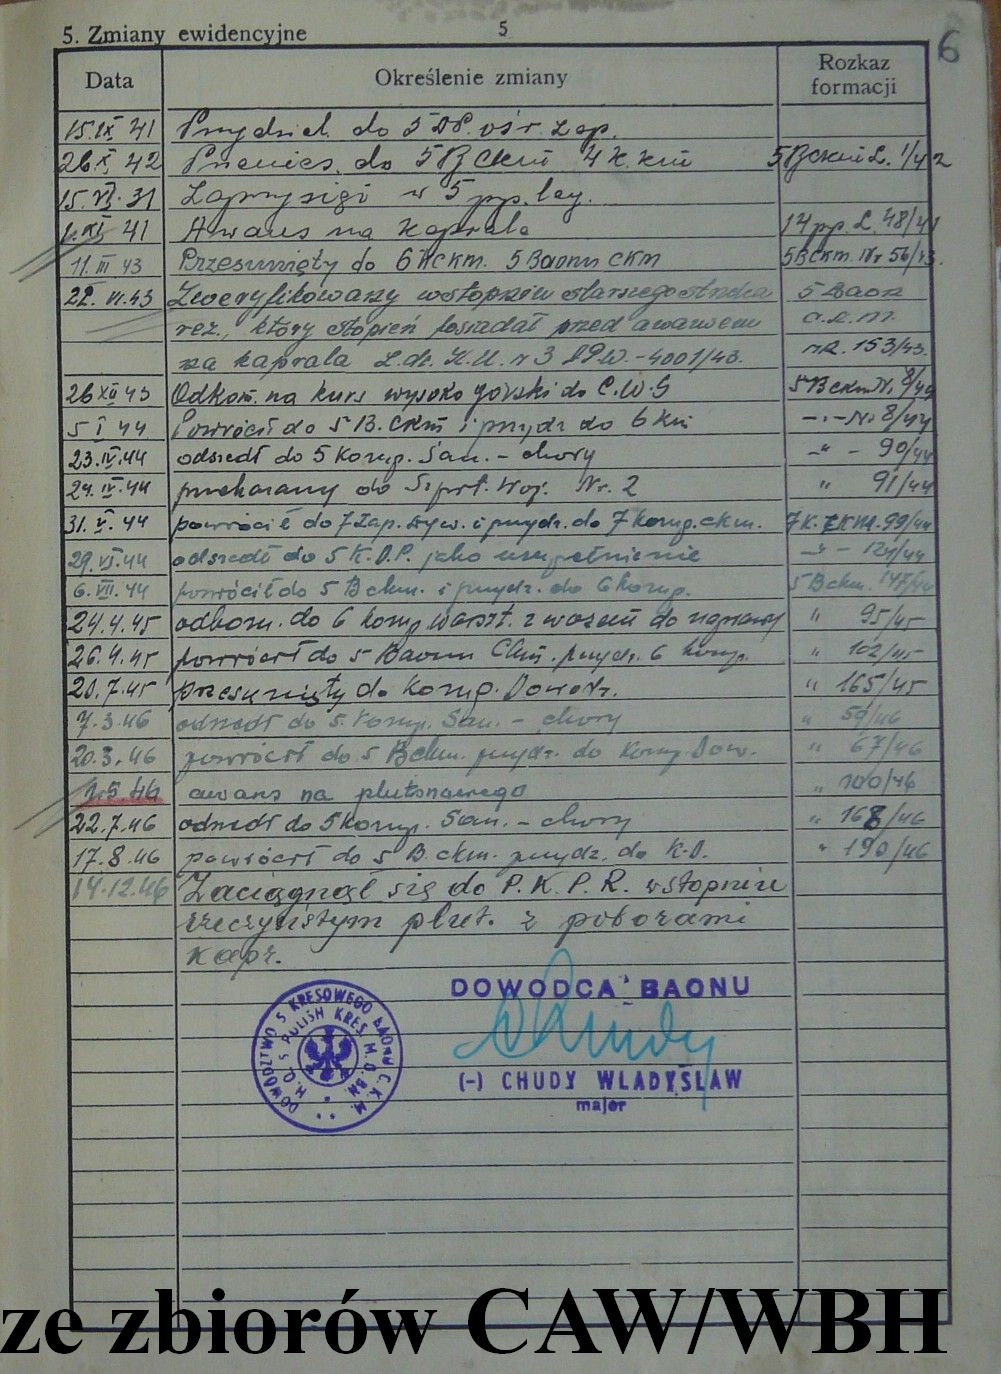 5. Zmiany ewidencyjne
5
6
Data Określenie zmiany Rozkaz formacji
15.IX 41 Przydziel. do 5 DP. ośr. Zap.
26 X 42 Przenies. do 5 B ckm 4 k. km 5 B ckm L. 1/42
15.VI.31 Zaprzysiągł w 5 pp. leg.
1.XI 41 Awans na kaprala 14 pp. L. 48/41
11.III 43 Przesunięty do 6 k ckm. 5 Baonu CKM 5 B ckm. Nr 56/43.
22.VI.43 Zweryfikowany w stopniu starszego strzelca 5 Baon
rez., który stopień posiadał przed awansem c.k.m.
na kaprala L.dz. nr. 153/43.
26 XII 43 Odkom. na kurs wysoko górski do C.W.G 5 B ckm Nr.
5 I 44 Powrócił do 5 B. ckm i przydz do 6 km -·- Nr 8/44
23.IV.44 odszedł do 5 komp. San. - chory -"- 90/44
24.IV.44 przekazany do Szpit. Woj. Nr. 2 " 91/44
31.V.44 powrócił do 7 Zap. i przydz. do 7 komp. ckm. 99/44
29.VI.44 odszedł do 5 K.D.P. jako uzupełnienie -"- 124/44
6.VII.44 powrócił do 5 B ckm. i przydz. do 6 komp. 5 B ckm. 147/44
24.4.45 odkom. do 6 komp warszt. z wozem do naprawy " 95/45
26.4.45 powrócił do 5 Baonu Ckm. przydz. 6 komp. " 102/45
20.7.45 przesunięty do komp. Dowodz. " 165/45
7.3.46 odszedł do 5. komp. San. - chory " 59/46
20.3.46 powrócił do 5 B ckm. przydz. do komp. Dow. " 67/46
1.5.46 awans na plutonowego " 100/46
22.7.46 odszedł do 5 komp. San. - chory " 168/46
17.8.46 powrócił do 5 B. ckm. przydz. do K.D. " 190/46
14.12.46 Zaciągnął się do P.K.P.R. w stopniu
rzeczywistym plut. z poborami
kapr.
DOWÓDZTWO 5 KRESOWEGO BAONU C.K.M.
H.Q. 5 POLISH KRES. M.G. BN.
DOWÓDCA BAONU
(-) CHUDY WŁADYSŁAW
major
ze zbiorów CAW/WBH